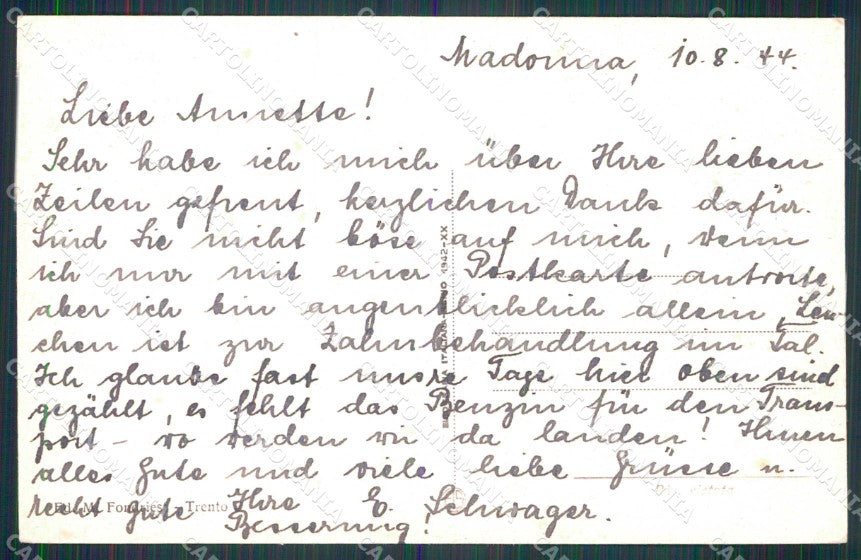 Madonna, 10.8.44.
Liebe Annette!
Sehr habe ich mich über Ihre lieben
Zeilen gefreut, herzlichen Dank dafür.
Sind Sie nicht böse auf mich, wenn
ich nur mit einer Postkarte antworte,
aber ich bin augenblicklich allein, Len-
chen ist zur Zahnbehandlung im Tal.
Ich glaube fast unsre Tage hier oben sind
gezählt, es fehlt das Benzin für den Trans-
port – wo werden wir da landen! Ihnen
alles Gute und viele liebe Grüsse u.
recht gute Ihre E. Schwager.
Besserung!
Ed. M. Fondriest - Trento
1942-XX
CARTOLINOMANIA